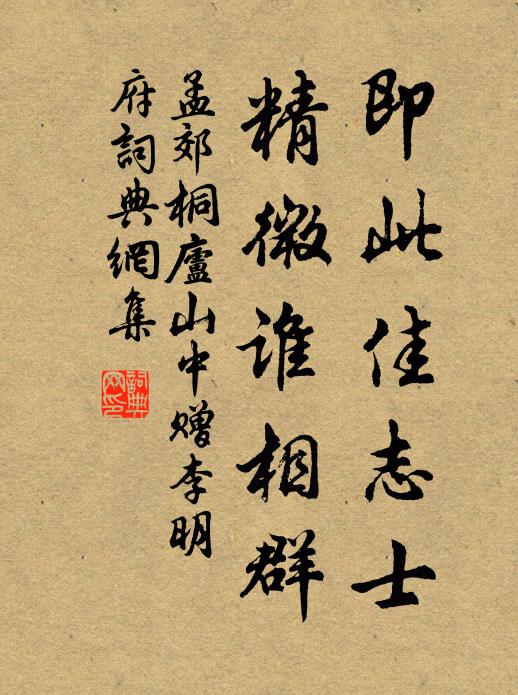 即此佳志士
精微谁相群
孟郊桐廬山中赠李明
府詞典網集
詞典
网印